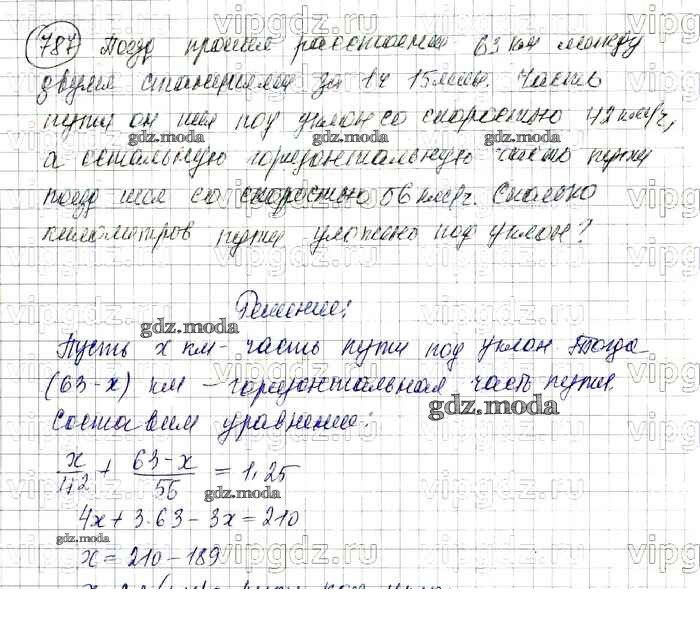 787 Поезд прошел расстояние 63 км между
двумя станциями за 1ч 15мин. Часть
пути он шел под уклон со скоростью 42 км/ч,
а остальную горизонтальную часть пути
поезд шел со скоростью 56 км/ч. Сколько
километров пути уложено под уклон?
Решение:
Пусть x км - часть пути под уклон. Тогда
(63-x) км - горизонтальная часть пути.
Составим уравнение:
x/42 + (63-x)/56 = 1,25
4x + 3·63 - 3x = 210
x = 210 - 189
gdz.moda
vipgdz.ru